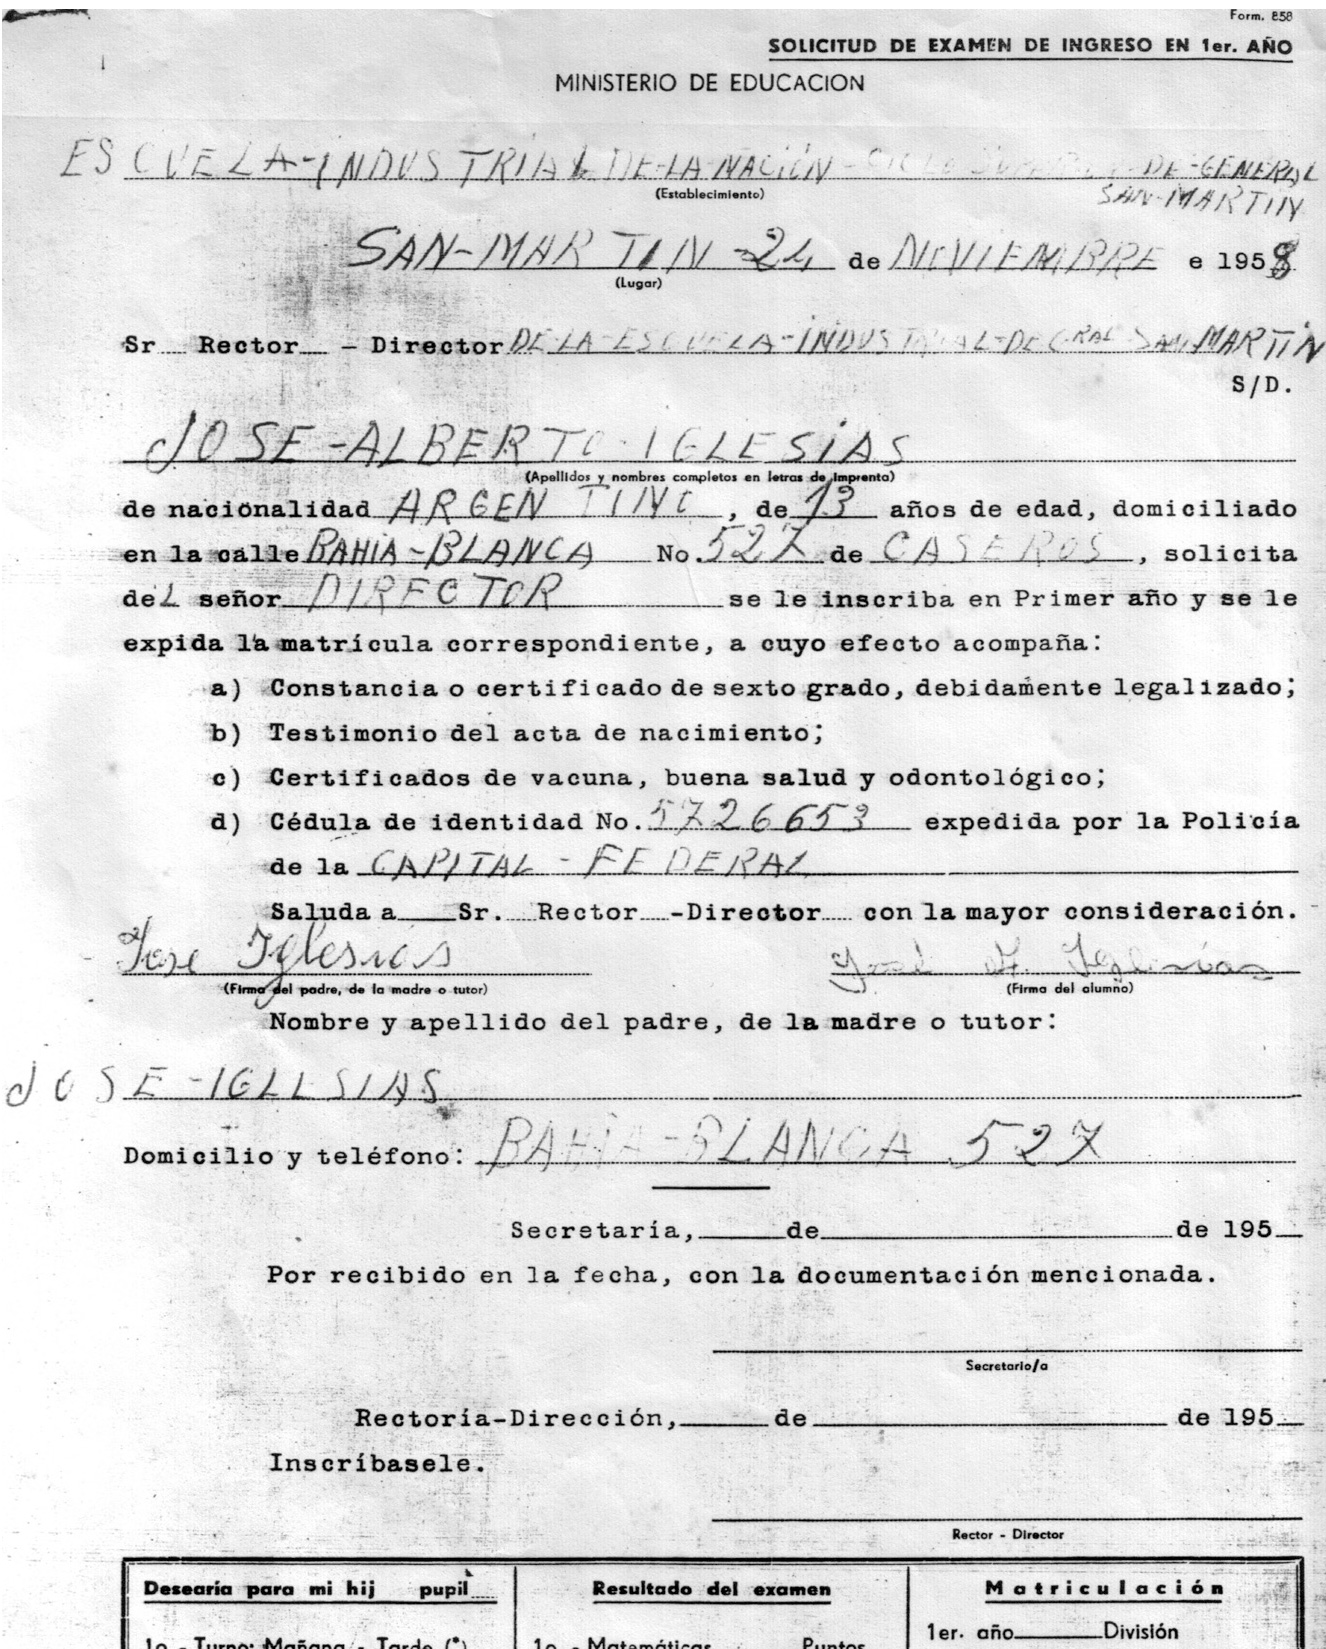 Form. 858
SOLICITUD DE EXAMEN DE INGRESO EN 1er. AÑO
MINISTERIO DE EDUCACION
ESCUELA-INDUSTRIAL DE-LA-NACIÓN-CICLO SUPERIOR-DE-GENERAL
(Establecimiento)
SAN-MARTIN
SAN-MARTIN 24 de NOVIEMBRE e 1958
(Lugar)
Sr Rector - Director DE-LA-ESCUELA-INDUSTRIAL-DE GRAL SAN MARTIN
S/D.
JOSE-ALBERTO-IGLESIAS
(Apellidos y nombres completos en letras de imprenta)
de nacionalidad ARGENTINO, de 13 años de edad, domiciliado
en la calle BAHIA-BLANCA No. 527 de CASEROS, solicita
del señor DIRECTOR se le inscriba en Primer año y se le
expida la matrícula correspondiente, a cuyo efecto acompaña:
a) Constancia o certificado de sexto grado, debidamente legalizado;
b) Testimonio del acta de nacimiento;
c) Certificados de vacuna, buena salud y odontológico;
d) Cédula de identidad No. 5726653 expedida por la Policía
de la CAPITAL-FEDERAL
Saluda a Sr. Rector -Director con la mayor consideración.
Jose Iglesias José A. Iglesias
(Firma del padre, de la madre o tutor) (Firma del alumno)
Nombre y apellido del padre, de la madre o tutor:
JOSE-IGLESIAS
Domicilio y teléfono: BAHIA-BLANCA 527
Secretaría, de de 195
Por recibido en la fecha, con la documentación mencionada.
Secretario/a
Rectoría-Dirección, de de 195
Inscríbasele.
Rector - Director
Desearía para mi hij pupil Resultado del examen Matriculación
1o. - Turno: Mañana - Tarde (*) 1o. - Matemáticas Puntos 1er. año División